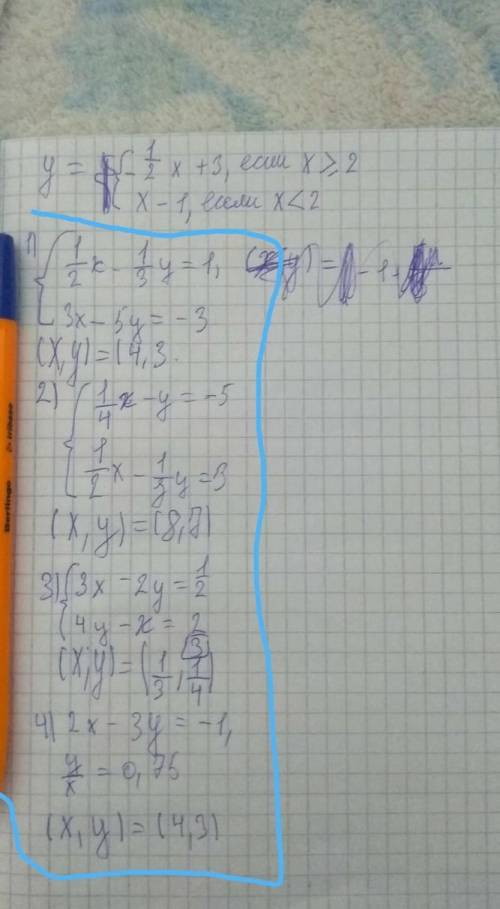 y = { -1/2 x + 3, если x ≥ 2
x - 1, если x < 2
1) { 1/2 x - 1/3 y = 1,
3x - 5y = -3
(X, y) = (4, 3
2) { 1/4 x - y = -5
1/2 x - 1/3 y = 3
(X, y) = (8, 7)
3) { 3x - 2y = 1/2
4y - x = 2/3
(X, y) = (1/3, 1/4)
4) 2x - 3y = -1,
y/x = 0,75
(X, y) = (4, 3)
Berlingo